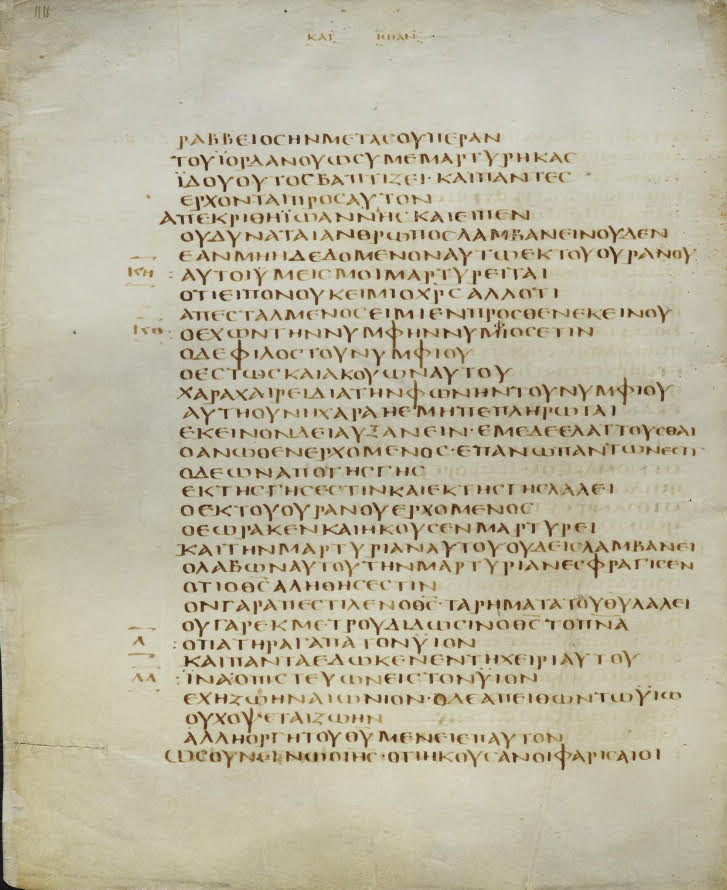 ΚΑΤ ΙΩΑΝ
ΡΑΒΒΕΙΟΣΗΝΜΕΤΑΣΟΥΠΕΡΑΝ
ΤΟΥΪΟΡΔΑΝΟΥΩΣΥΜΕΜΑΡΤΥΡΗΚΑΣ
ΪΔΟΥΟΥΤΟΣΒΑΠΤΙΖΕΙ· ΚΑΙΠΑΝΤΕΣ
ΕΡΧΟΝΤΑΙΠΡΟΣΑΥΤΟΝ
ΑΠΕΚΡΙΘΗΪΩΑΝΝΗΣΚΑΙΕΙΠΕΝ
ΟΥΔΥΝΑΤΑΙΑΝΘΡΩΠΟΣΛΑΜΒΑΝΕΙΝΟΥΔΕΝ
ΕΑΝΜΗΗΔΕΔΟΜΕΝΟΝΑΥΤΩΕΚΤΟΥΟΥΡΑΝΟΥ
ΚΗ : ΑΥΤΟΙΫΜΕΙΣΜΟΙΜΑΡΤΥΡΕΙΤΑΙ
ΟΤΙΕΙΠΟΝΟΥΚΕΙΜΙΟΧΡΣΑΛΛΟΤΙ
ΑΠΕΣΤΑΛΜΕΝΟΣΕΙΜΙΕΝΠΡΟΣΘΕΝΕΚΕΙΝΟΥ
ΚΘ : ΟΕΧΩΝΤΗΝΝΥΜΦΗΝΝΥΜΦΙΟΣΕΣΤΙΝ
ΟΔΕΦΙΛΟΣΤΟΥΝΥΜΦΙΟΥ
ΟΕΣΤΩΣΚΑΙΑΚΟΥΩΝΑΥΤΟΥ
ΧΑΡΑΧΑΙΡΕΙΔΙΑΤΗΝΦΩΝΗΝΤΟΥΝΥΜΦΙΟΥ
ΑΥΤΗΟΥΝΗΧΑΡΑΗΕΜΗΠΕΠΛΗΡΩΤΑΙ
ΕΚΕΙΝΟΝΔΕΙΑΥΞΑΝΕΙΝ· ΕΜΕΔΕΕΛΑΤΤΟΥΣΘΑΙ
ΟΑΝΩΘΕΝΕΡΧΟΜΕΝΟΣ· ΕΠΑΝΩΠΑΝΤΩΝΕΣΤΙ
ΟΔΕΩΝΑΠΟΤΗΣΓΗΣ
ΕΚΤΗΣΓΗΣΕΣΤΙΝΚΑΙΕΚΤΗΣΓΗΣΛΑΛΕΙ
ΟΕΚΤΟΥΟΥΡΑΝΟΥΕΡΧΟΜΕΝΟΣ
ΟΕΩΡΑΚΕΝΚΑΙΗΚΟΥΣΕΝΜΑΡΤΥΡΕΙ
ΚΑΙΤΗΝΜΑΡΤΥΡΙΑΝΑΥΤΟΥΟΥΔΕΙΣΛΑΜΒΑΝΕΙ
ΟΛΑΒΩΝΑΥΤΟΥΤΗΝΜΑΡΤΥΡΙΑΝΕΣΦΡΑΓΙΣΕΝ
ΟΤΙΟΘΣΑΛΗΘΗΣΕΣΤΙΝ
ΟΝΓΑΡΑΠΕΣΤΙΛΕΝΟΘΣ· ΤΑΡΗΜΑΤΑΤΟΥΘΥΛΑΛΕΙ
ΟΥΓΑΡΕΚΜΕΤΡΟΥΔΙΔΩΣΙΝΟΘΣΤΟΠΝΑ
Λ : ΟΠΑΤΗΡΑΓΑΠΑΤΟΝΫΙΟΝ
ΚΑΙΠΑΝΤΑΕΔΩΚΕΝΕΝΤΗΧΕΙΡΙΑΥΤΟΥ
ΛΑ : ΪΝΑΟΠΙΣΤΕΥΩΝΕΙΣΤΟΝΫΙΟΝ
ΕΧΗΖΩΗΝΑΙΩΝΙΟΝ· ΟΔΕΑΠΕΙΘΩΝΤΩΫΙΩ
ΟΥΧΟΨΕΤΑΙΖΩΗΝ
ΑΛΛΗΟΡΓΗΤΟΥΘΥΜΕΝΕΙΕΠΑΥΤΟΝ
ΩΣΟΥΝΕΓΝΩΟΙΗΣ· ΟΤΙΗΚΟΥΣΑΝΟΙΦΑΡΙΣΑΙΟΙ